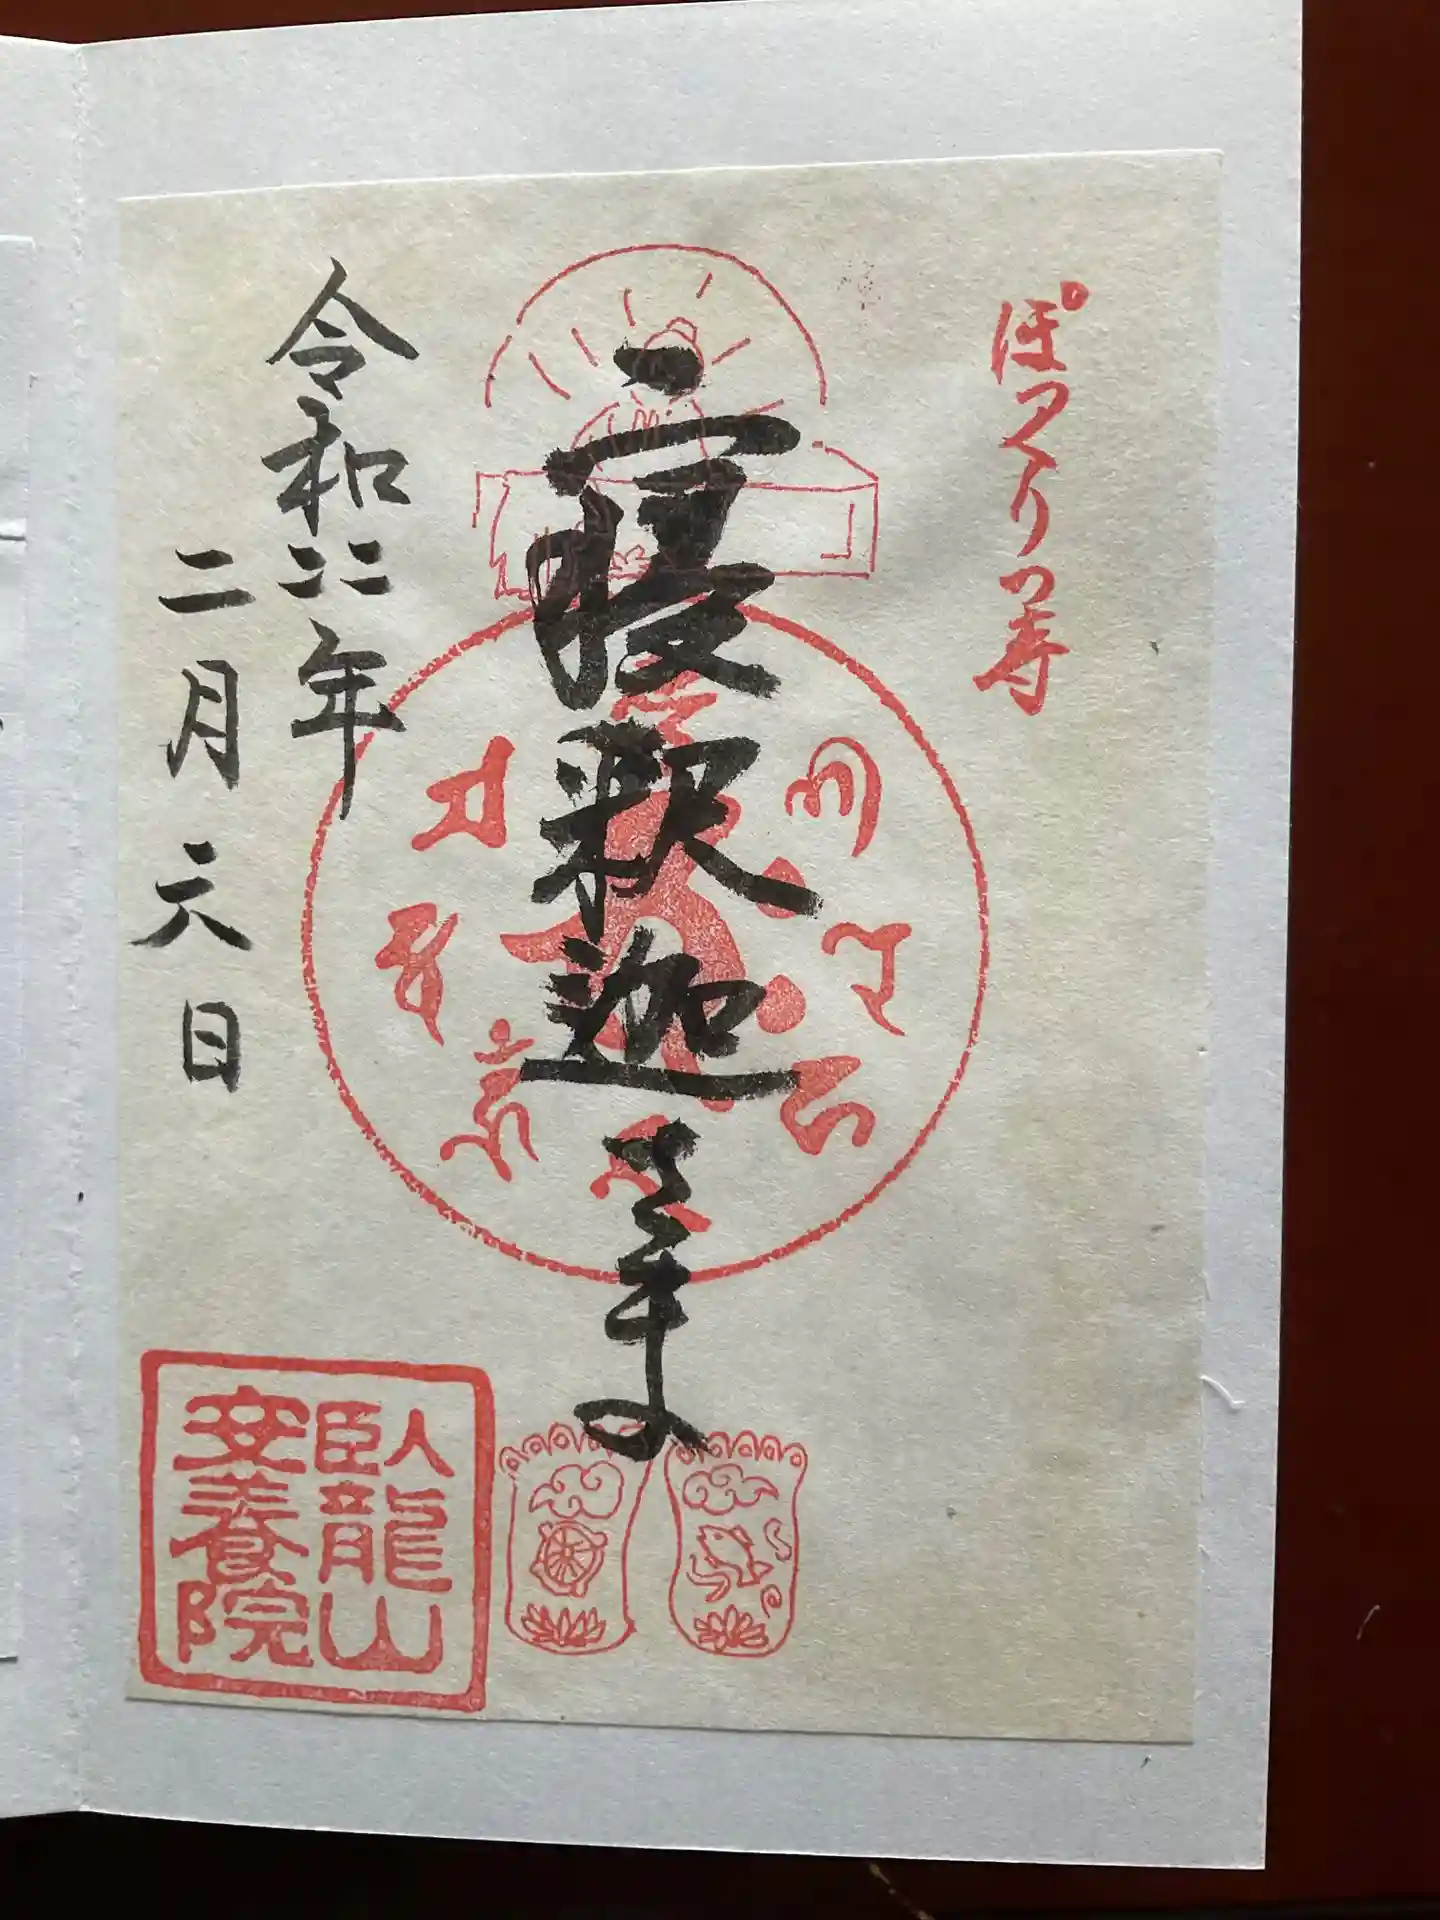 ぽっくり寺
寝釈迦さま
令和二二年
二月六日
臥龍山
安養院